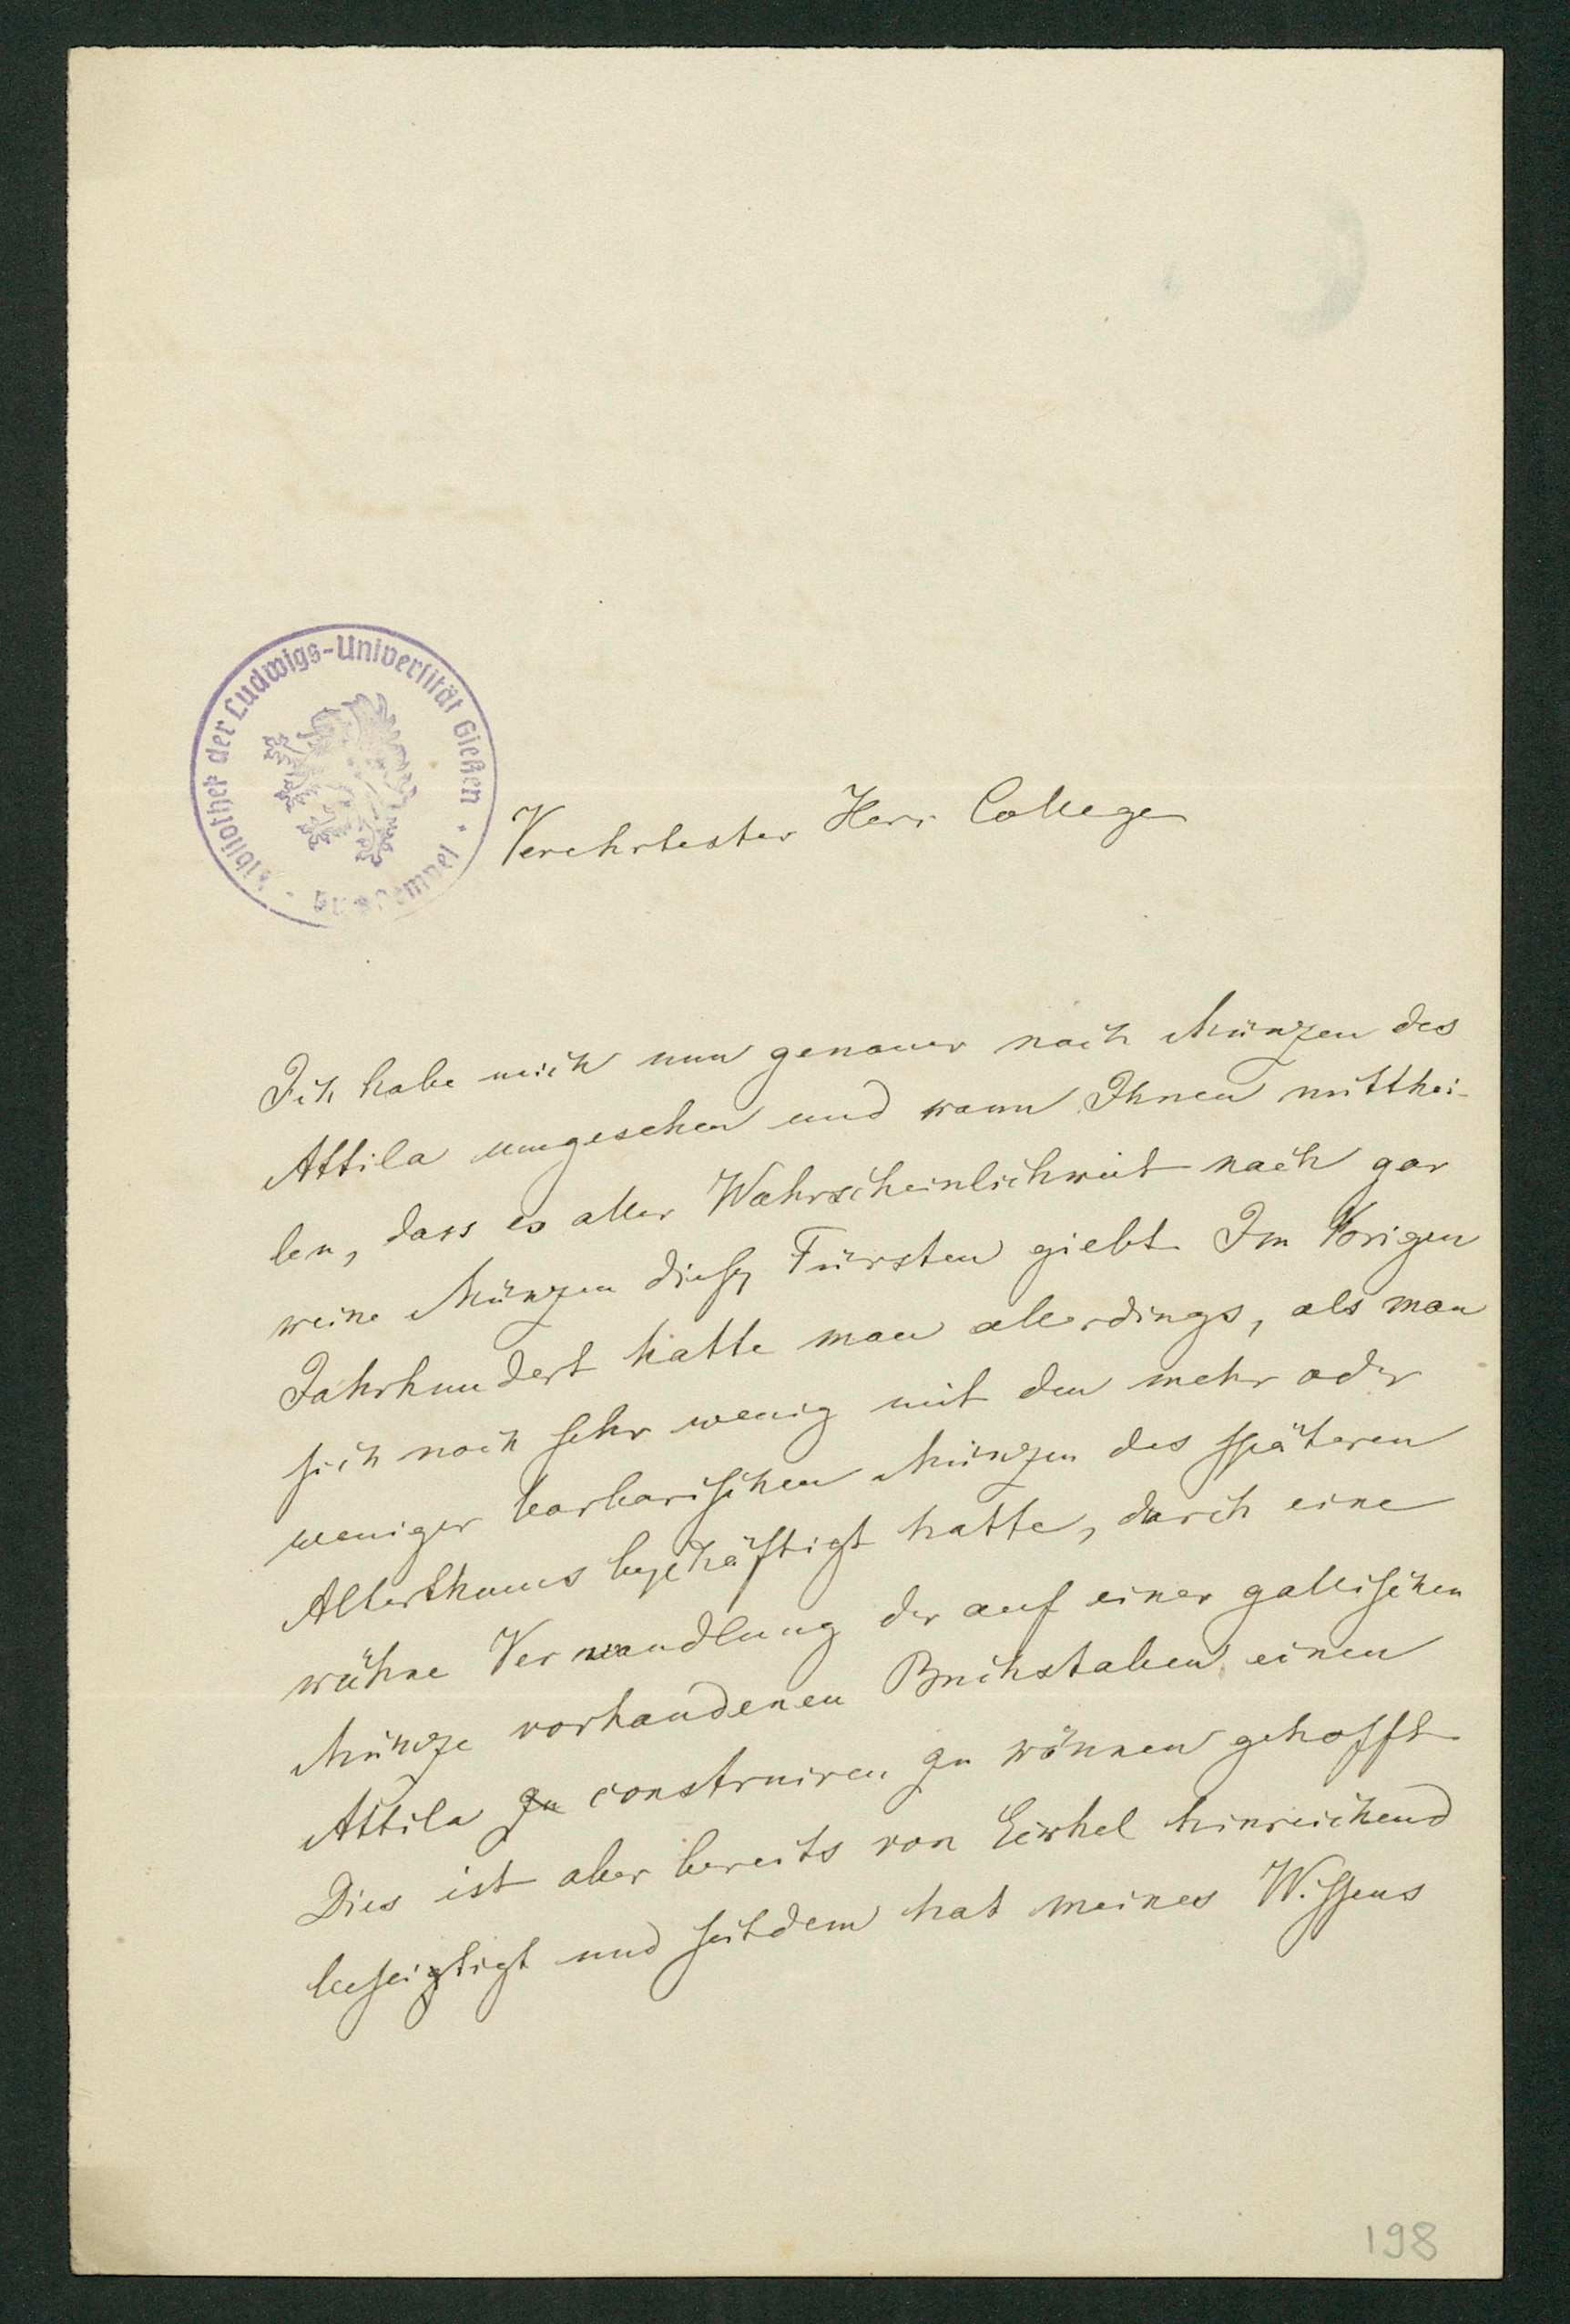 Bibliothek der Ludwigs-Universität Gießen
Verehrtester Herr College
Ich habe mich nun genauer nach Münzen des
Attila umgesehen und kann Ihnen mitthei-
len, dass es aller Wahrscheinlichkeit nach gar
keine Münzen dieses Fürsten giebt. Im Vorigen
Jahrhundert hatte man allerdings, als man
sich noch sehr wenig mit den mehr oder
weniger barbarischen Münzen des späteren
Alterthums beschäftigt hatte, durch eine
kühne Verwandlung der auf einer gallischen
Münze vorhandenen Buchstaben einen
Attila zu construiren zu können gehofft
Dies ist aber bereits von Eckhel hinreichend
beseitigt und seitdem hat meines Wissens
198